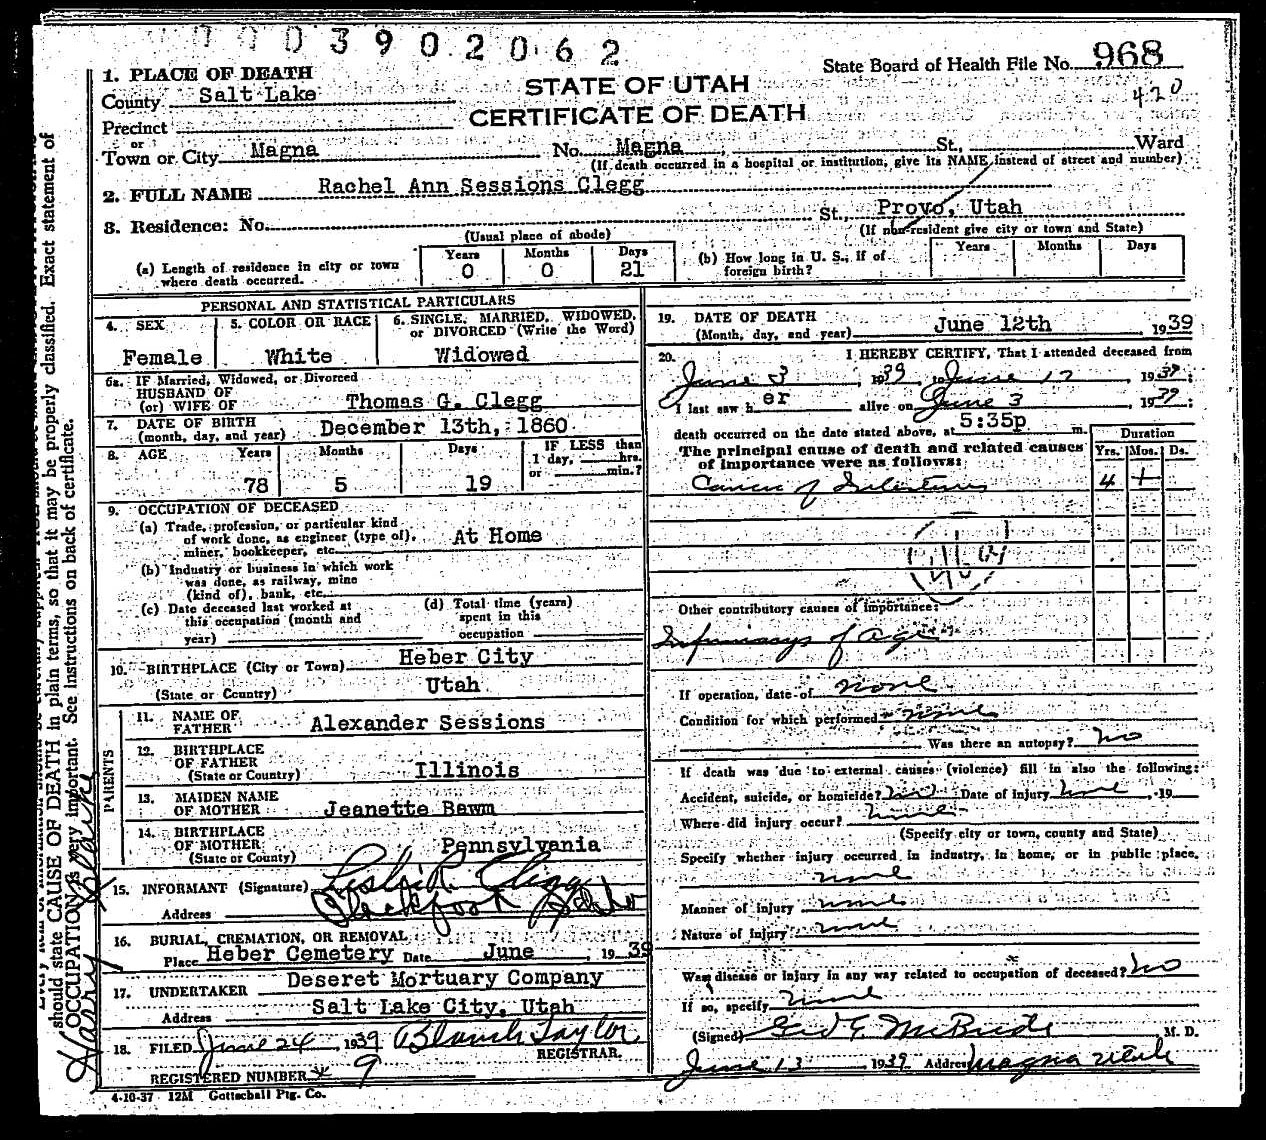 0003902062
State Board of Health File No. 968
420
1. PLACE OF DEATH
STATE OF UTAH
County Salt Lake
CERTIFICATE OF DEATH
Precinct
or
Town or City Magna No. Magna, St., Ward
(If death occurred in a hospital or institution, give its NAME instead of street and number)
2. FULL NAME Rachel Ann Sessions Clegg
3. Residence: No. St., Provo, Utah
(Usual place of abode) (If non-resident give city or town and State)
(a) Length of residence in city or town where death occurred. Years 0 Months 0 Days 21
(b) How long in U. S., if of foreign birth? Years Months Days
PERSONAL AND STATISTICAL PARTICULARS
4. SEX Female
5. COLOR OR RACE White
6. SINGLE, MARRIED, WIDOWED, or DIVORCED (Write the Word) Widowed
6a. IF Married, Widowed, or Divorced
HUSBAND OF
(or) WIFE OF Thomas G. Clegg
7. DATE OF BIRTH
(month, day, and year) December 13th, 1860
8. AGE Years 78 Months 5 Days 19
IF LESS than
1 day, hrs.
or min.?
9. OCCUPATION OF DECEASED
(a) Trade, profession, or particular kind
of work done, as engineer (type of),
miner, bookkeeper, etc. At Home
(b) Industry or business in which work
was done, as railway, mine
(kind of), bank, etc.
(c) Date deceased last worked at
this occupation (month and
year)
(d) Total time (years)
spent in this
occupation
10. BIRTHPLACE (City or Town) Heber City
(State or Country) Utah
PARENTS
11. NAME OF
FATHER Alexander Sessions
12. BIRTHPLACE
OF FATHER
(State or Country) Illinois
13. MAIDEN NAME
OF MOTHER Jeanette Bawm
14. BIRTHPLACE
OF MOTHER
(State or Country) Pennsylvania
15. INFORMANT (Signature) Leslie R. Clegg
Address Blackfoot Idaho
16. BURIAL, CREMATION, OR REMOVAL
Place Heber Cemetery Date June, 1939
17. UNDERTAKER Deseret Mortuary Company
Address Salt Lake City, Utah
18. FILED June 24, 1939 Blanch Taylor
REGISTRAR.
REGISTERED NUMBER 9
4-10-37 12M Gottschall Ptg. Co.
19. DATE OF DEATH
(Month, day, and year) June 12th, 1939
20. I HEREBY CERTIFY, That I attended deceased from
June 3, 1939, to June 12, 1939;
I last saw her alive on June 3, 1939;
death occurred on the date stated above, at 5:35p m.
The principal cause of death and related causes
of importance were as follows:
Duration
Yrs. Mos. Ds.
Cancer of Intestines 4 +
Other contributory causes of importance:
Infirmarys of age
If operation, date of none
Condition for which performed none
Was there an autopsy? no
If death was due to external causes (violence) fill in also the following:
Accident, suicide, or homicide? no Date of injury none, 19
Where did injury occur? none
(Specify city or town, county and State)
Specify whether injury occurred in industry, in home, or in public place.
none
Manner of injury none
Nature of injury none
Was disease or injury in any way related to occupation of deceased? no
If so, specify none
(Signed) Geo E. McBride M. D.
June 13, 1939 Address Magna Utah
should state CAUSE OF DEATH in plain terms, so that it may be properly classified. Exact statement of
OCCUPATION is very important. See instructions on back of certificate.
Harry